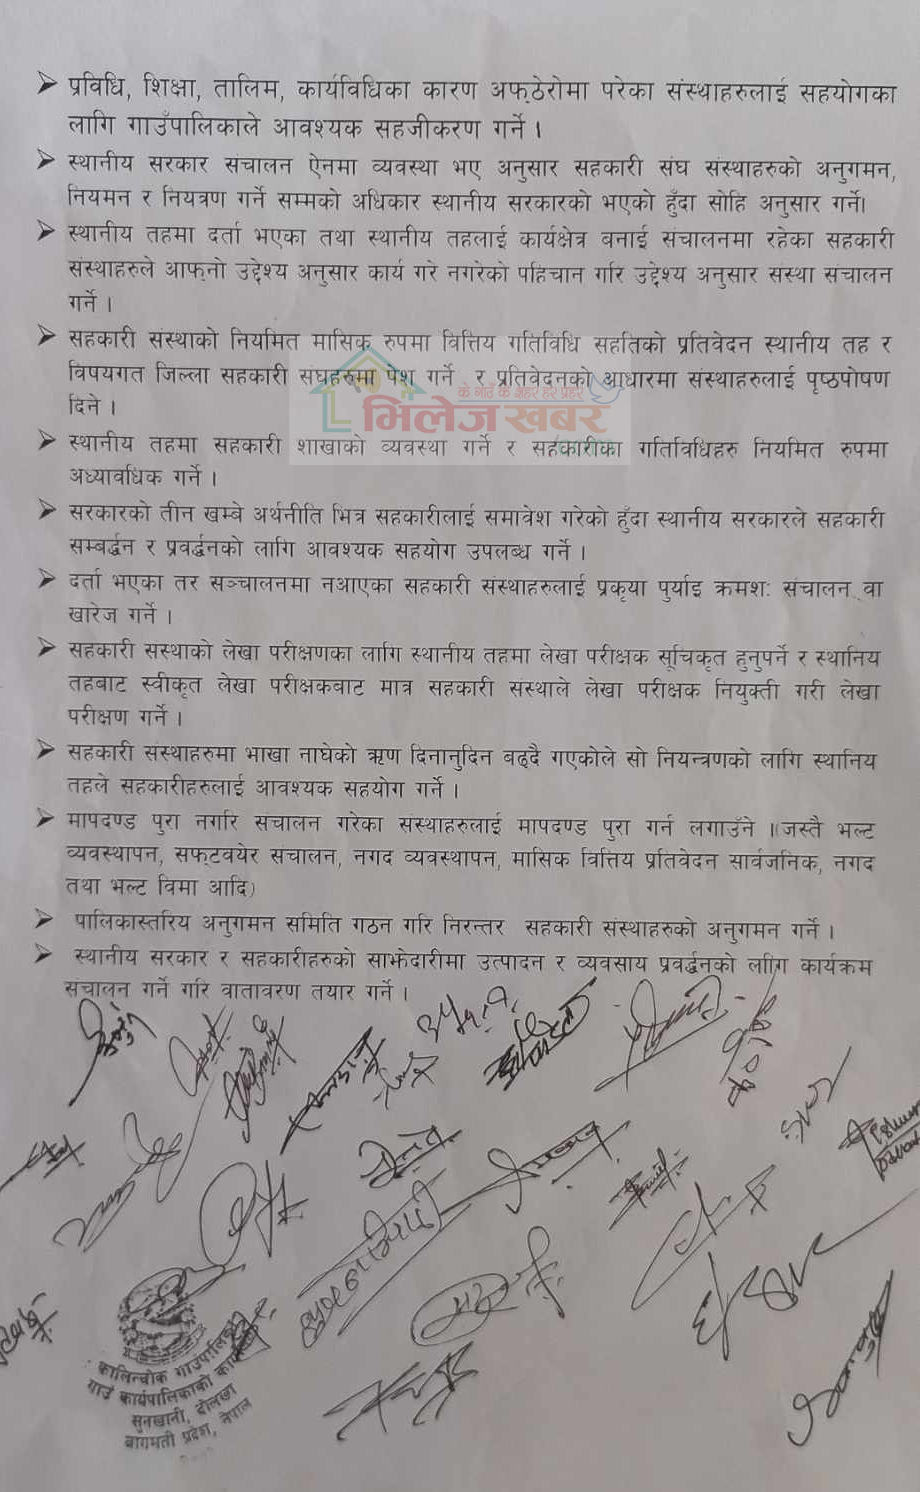 ➢ प्रविधि, शिक्षा, तालिम, कार्यविधिका कारण अफ्ठेरोमा परेका संस्थाहरुलाई सहयोगका
लागि गाउँपालिकाले आवश्यक सहजीकरण गर्ने ।
➢ स्थानीय सरकार संचालन ऐनमा व्यवस्था भए अनुसार सहकारी संघ संस्थाहरुको अनुगमन,
नियमन र नियत्रण गर्ने सम्मको अधिकार स्थानीय सरकारको भएको हुँदा सोहि अनुसार गर्ने।
➢ स्थानीय तहमा दर्ता भएका तथा स्थानीय तहलाई कार्यक्षेत्र बनाई संचालनमा रहेका सहकारी
संस्थाहरुले आफ्नो उद्देश्य अनुसार कार्य गरे नगरेको पहिचान गरि उद्देश्य अनुसार संस्था संचालन
गर्ने ।
➢ सहकारी संस्थाको नियमित मासिक रुपमा वित्तिय गतिविधि सहतिको प्रतिवेदन स्थानीय तह र
विषयगत जिल्ला सहकारी संघहरुमा पेश गर्ने र प्रतिवेदनको आधारमा संस्थाहरुलाई पृष्ठपोषण
दिने ।
के गाउँ के शहर हर प्रहर
भिलेज खबर
➢ स्थानीय तहमा सहकारी शाखाको व्यवस्था गर्ने र सहकारीका गतिविधिहरु नियमित रुपमा
अध्यावधिक गर्ने ।
➢ सरकारको तीन खम्बे अर्थनीति भित्र सहकारीलाई समावेश गरेको हुँदा स्थानीय सरकारले सहकारी
सम्बर्द्धन र प्रवर्द्धनको लागि आवश्यक सहयोग उपलब्ध गर्ने ।
➢ दर्ता भएका तर सञ्चालनमा नआएका सहकारी संस्थाहरुलाई प्रकृया पुर्याइ क्रमशः संचालन वा
खारेज गर्ने ।
➢ सहकारी संस्थाको लेखा परीक्षणका लागि स्थानीय तहमा लेखा परीक्षक सूचिकृत हुनुपर्ने र स्थानिय
तहबाट स्वीकृत लेखा परीक्षकबाट मात्र सहकारी संस्थाले लेखा परीक्षक नियुक्ती गरी लेखा
परीक्षण गर्ने ।
➢ सहकारी संस्थाहरुमा भाखा नाघेको ऋण दिनानुदिन बढ्दै गएकोले सो नियन्त्रणको लागि स्थानिय
तहले सहकारीहरुलाई आवश्यक सहयोग गर्ने ।
➢ मापदण्ड पुरा नगरि संचालन गरेका संस्थाहरुलाई मापदण्ड पुरा गर्न लगाउँने ।(जस्तै भल्ट
व्यवस्थापन, सफ्टवयेर संचालन, नगद व्यवस्थापन, मासिक वित्तिय प्रतिवेदन सार्वजनिक, नगद
तथा भल्ट विमा आदि)
➢ पालिकास्तरिय अनुगमन समिति गठन गरि निरन्तर सहकारी संस्थाहरुको अनुगमन गर्ने ।
➢ स्थानीय सरकार र सहकारीहरुको साझेदारीमा उत्पादन र व्यवसाय प्रवर्द्धनको लागि कार्यक्रम
संचालन गर्ने गरि वातावरण तयार गर्ने ।
कालिन्चोक गाउँपालिका
गाउँ कार्यपालिकाको कार्यालय
सुनखानी, दोलखा
बागमती प्रदेश, नेपाल